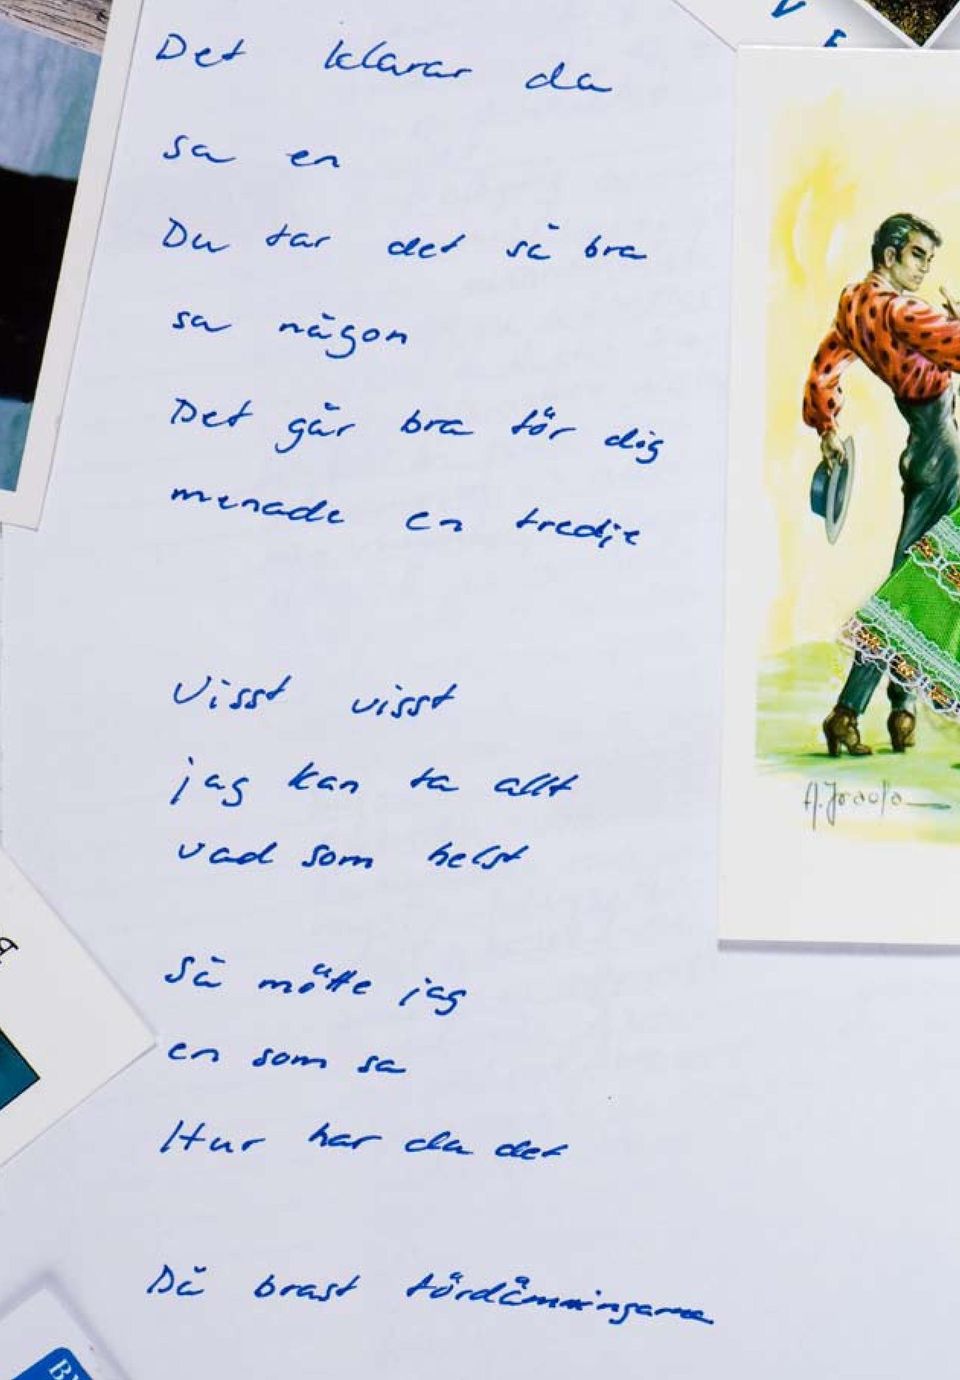 Det klarar du
sa en
Du tar det så bra
sa någon
Det går bra för dig
menade en tredje
Visst visst
jag kan ta allt
vad som helst
Så mötte jag
en som sa
Hur har du det
Då brast fördämningarna